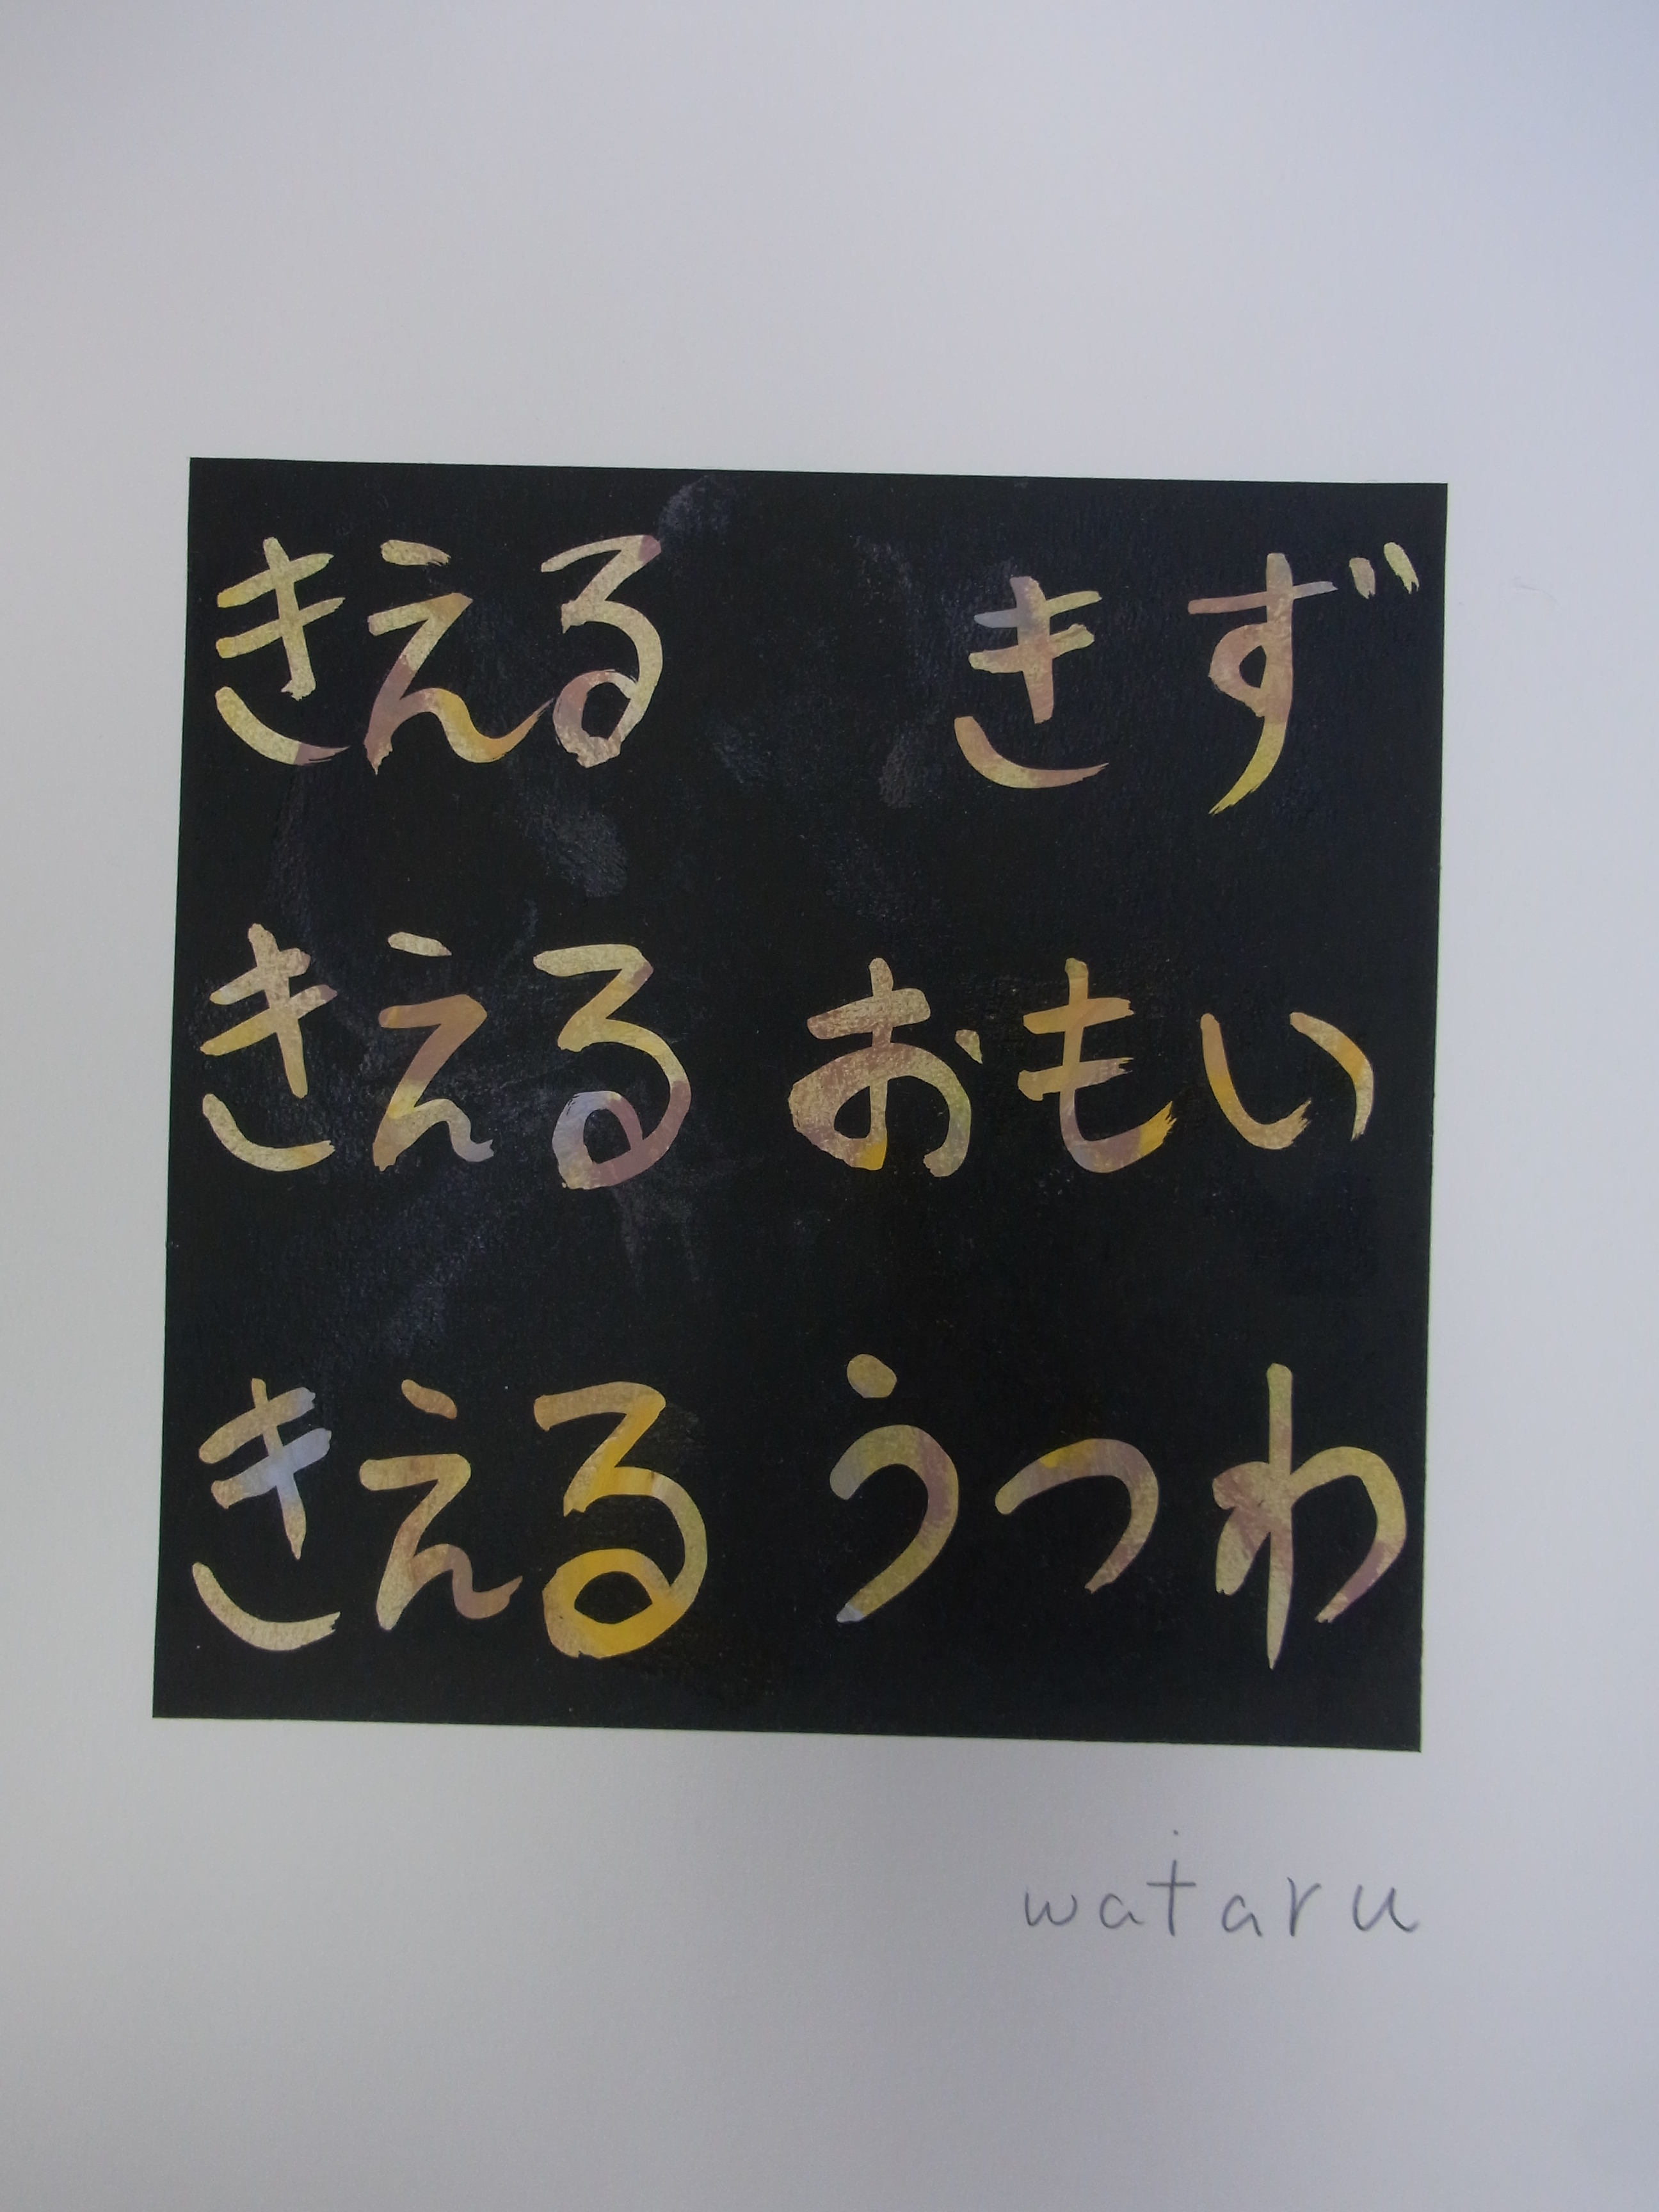 きえる きず
きえる おもい
きえる うつわ
wataru